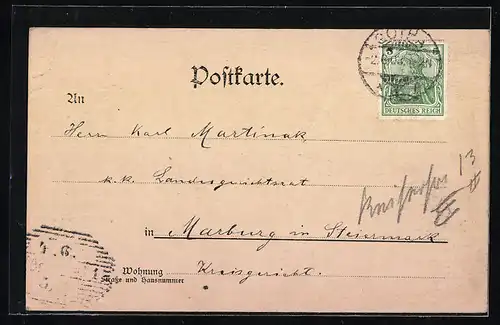 GOTHA
DEUTSCHES REICH
Postkarte.
An
Herrn Karl Martinak
k. k. Landesgerichtsrat
13
in Marburg in Steiermark
4. 6.
Wohnung
Kreisgericht.
Straße und Hausnummer